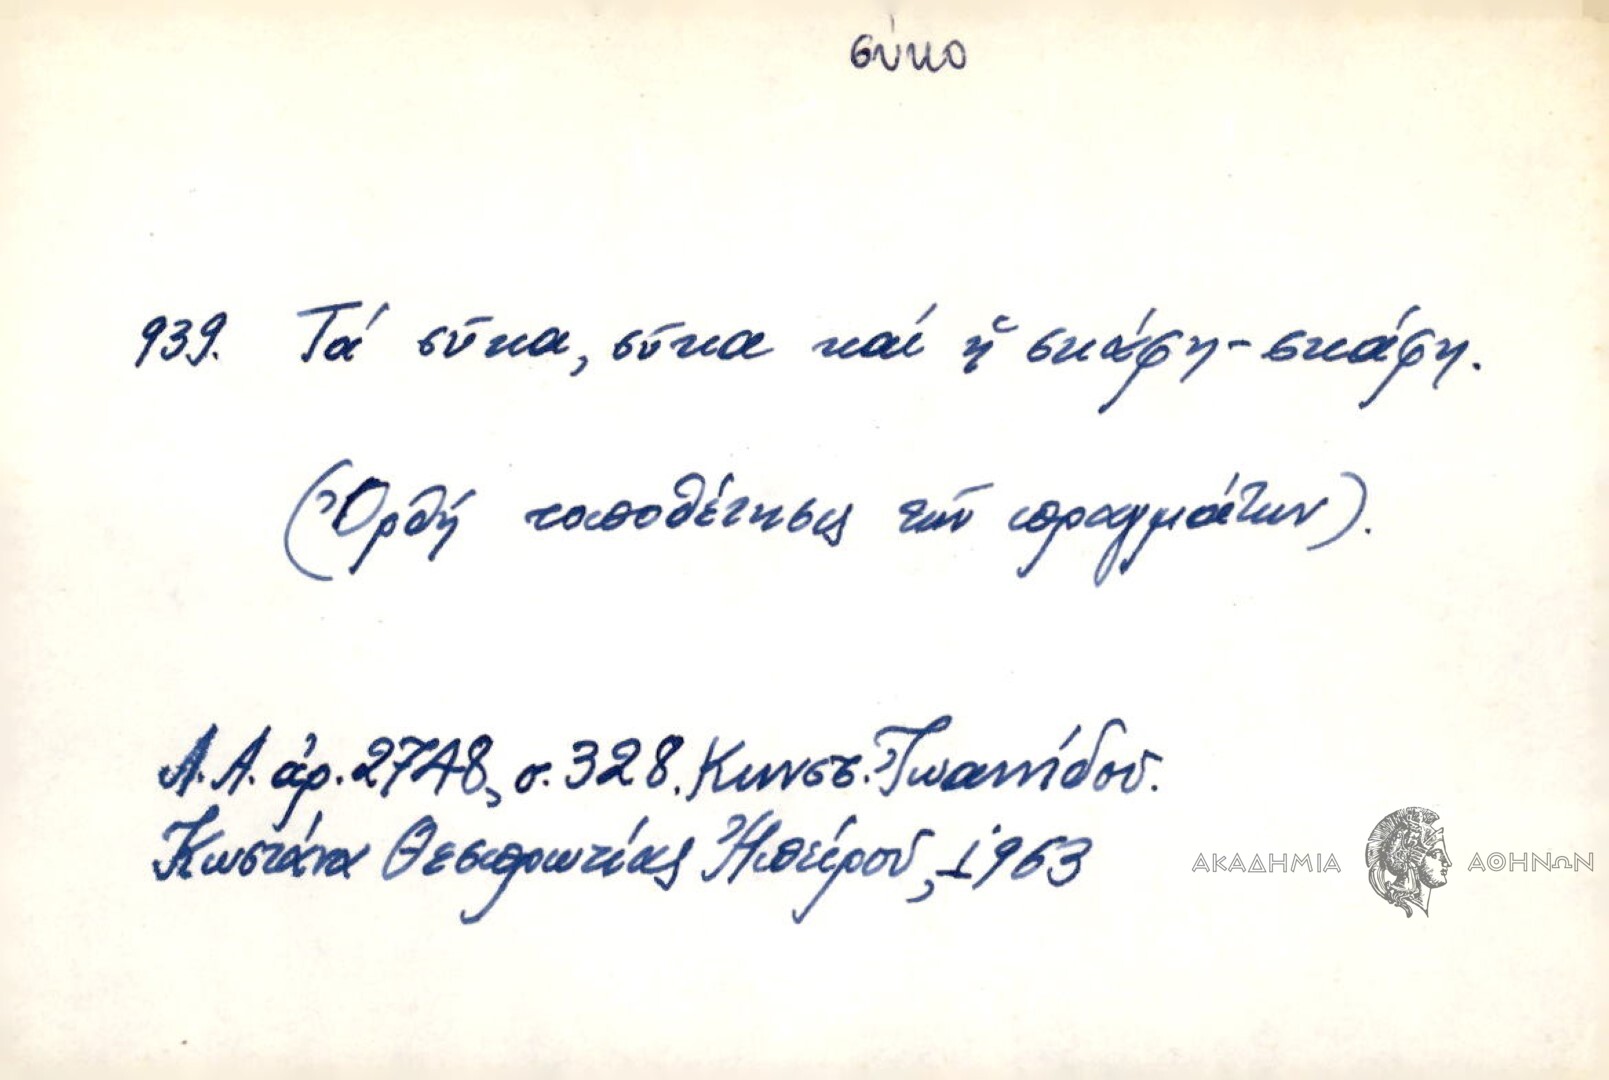 σύκο
939. Τά σῦκα, σῦκα καί ἡ σκάφη-σκάφη.
(Ὀρθή τοποθέτησις τῶν πραγμάτων).
Λ.Α. ἀρ. 2748, σ. 328. Κωνστ. Ἰωαννίδου.
Θεσπρωτίας Ἠπείρου, 1963
ΑΚΑΔΗΜΙΑ ΑΘΗΝΩΝ